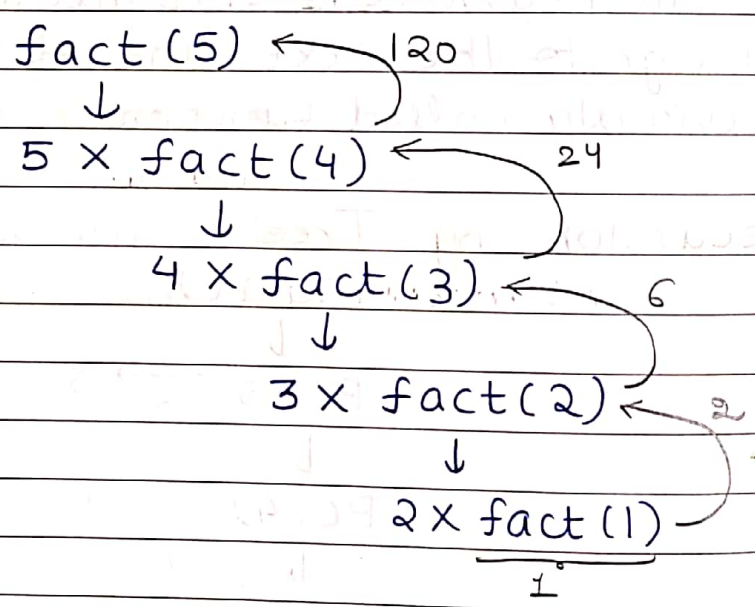 fact (5) 120
↓
5 × fact (4) 24
↓
4 × fact (3) 6
↓
3 × fact (2) 2
↓
2 × fact (1)
1